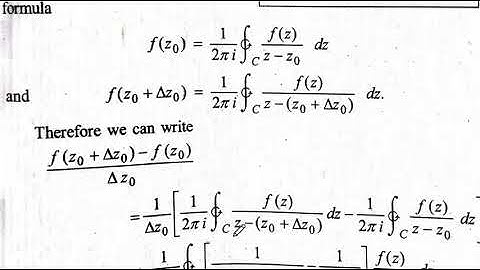 formula
f(z₀) = 1/2πi ∮_C f(z)/z−z₀ dz
and f(z₀ + Δz₀) = 1/2πi ∮_C f(z)/z−(z₀ + Δz₀) dz.
Therefore we can write
f(z₀ + Δz₀) − f(z₀)/Δz₀
= 1/Δz₀ [ 1/2πi ∮_C f(z)/z−(z₀ + Δz₀) dz − 1/2πi ∮_C f(z)/z−z₀ dz ]
1 ∮ [ 1 − 1 ] f(z)